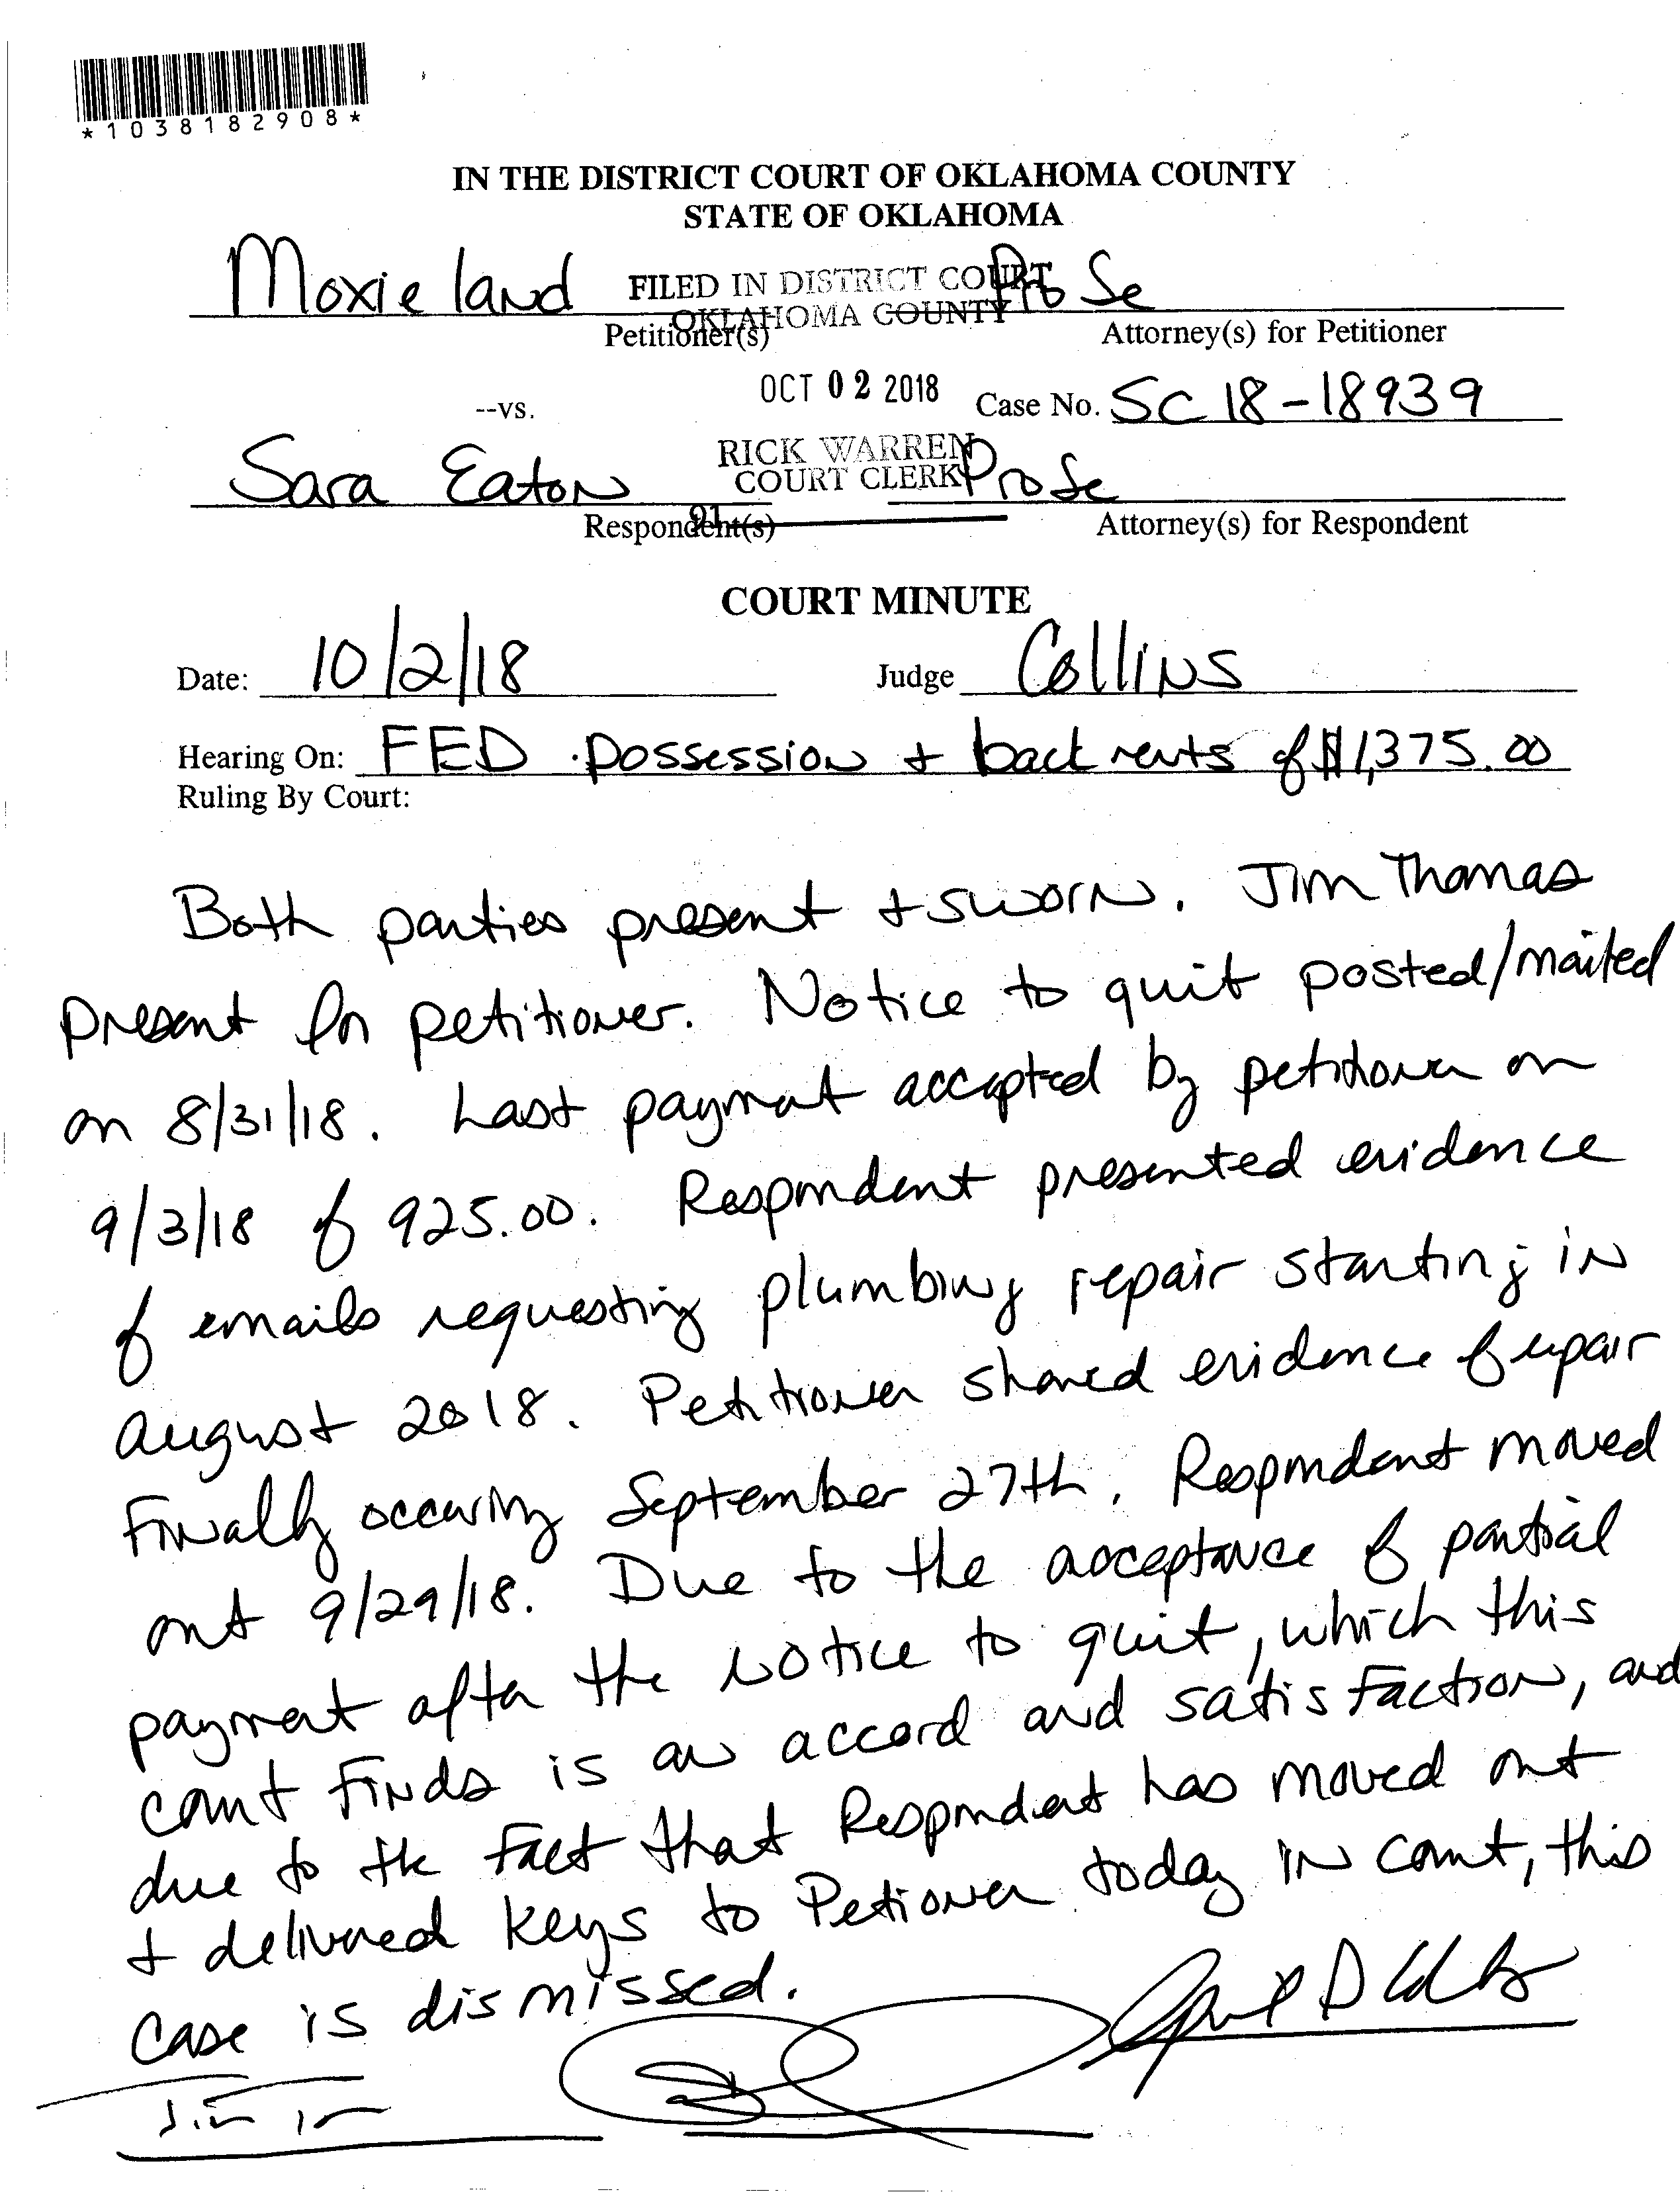 *1038182908*
IN THE DISTRICT COURT OF OKLAHOMA COUNTY
STATE OF OKLAHOMA
Moxie land FILED IN DISTRICT COURT Pro Se
OKLAHOMA COUNTY
Petitioner(s) Attorney(s) for Petitioner
OCT 02 2018
--vs. Case No. SC 18-18939
RICK WARREN
COURT CLERK
Sara Eaton Pro Se
91
Respondent(s) Attorney(s) for Respondent
COURT MINUTE
Date: 10/2/18 Judge Collins
Hearing On: FED possession + back rents of $1,375.00
Ruling By Court:
Both parties present + sworn. Jim Thomas
present for petitioner. Notice to quit posted/mailed
on 8/31/18. Last payment accepted by petitioner on
9/3/18 of 925.00. Respondent presented evidence
of emails requesting plumbing repair starting in
August 2018. Petitioner shared evidence of repair
finally occuring September 27th. Respondent moved
out 9/29/18. Due to the acceptance of partial
payment after the notice to quit, which this
court finds is an accord and satisfaction, and
due to the fact that Respondent has moved out
+ delivered keys to Petioner today in court, this
case is dismissed.